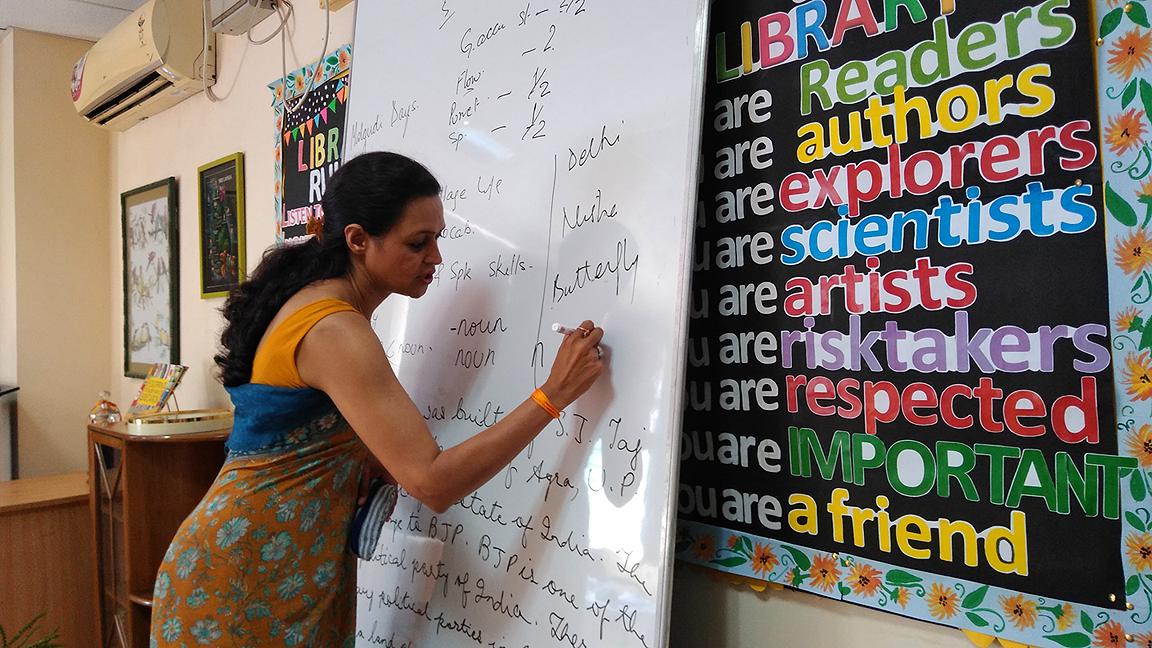 LIBR
RU
LISTEN TO
G.accu st - 1/2
- 2
Flow. 1/2
Punct. - 1/2
Sp. - 1/2
Malgudi Days.
Delhi
Neha
Butterfly
llage life
ocab.
Spk skills.
-noun
noun
noun n
was built S.J. Taj
of Agra, U.P.
tate of India. The
to BJP. BJP is one of the
litical party of India. There
political parties in
a land of
LIBRARY
are Readers
are authors
are explorers
u are scientists
u are artists
u are risktakers
ou are respected
ou are IMPORTANT
ou are a friend